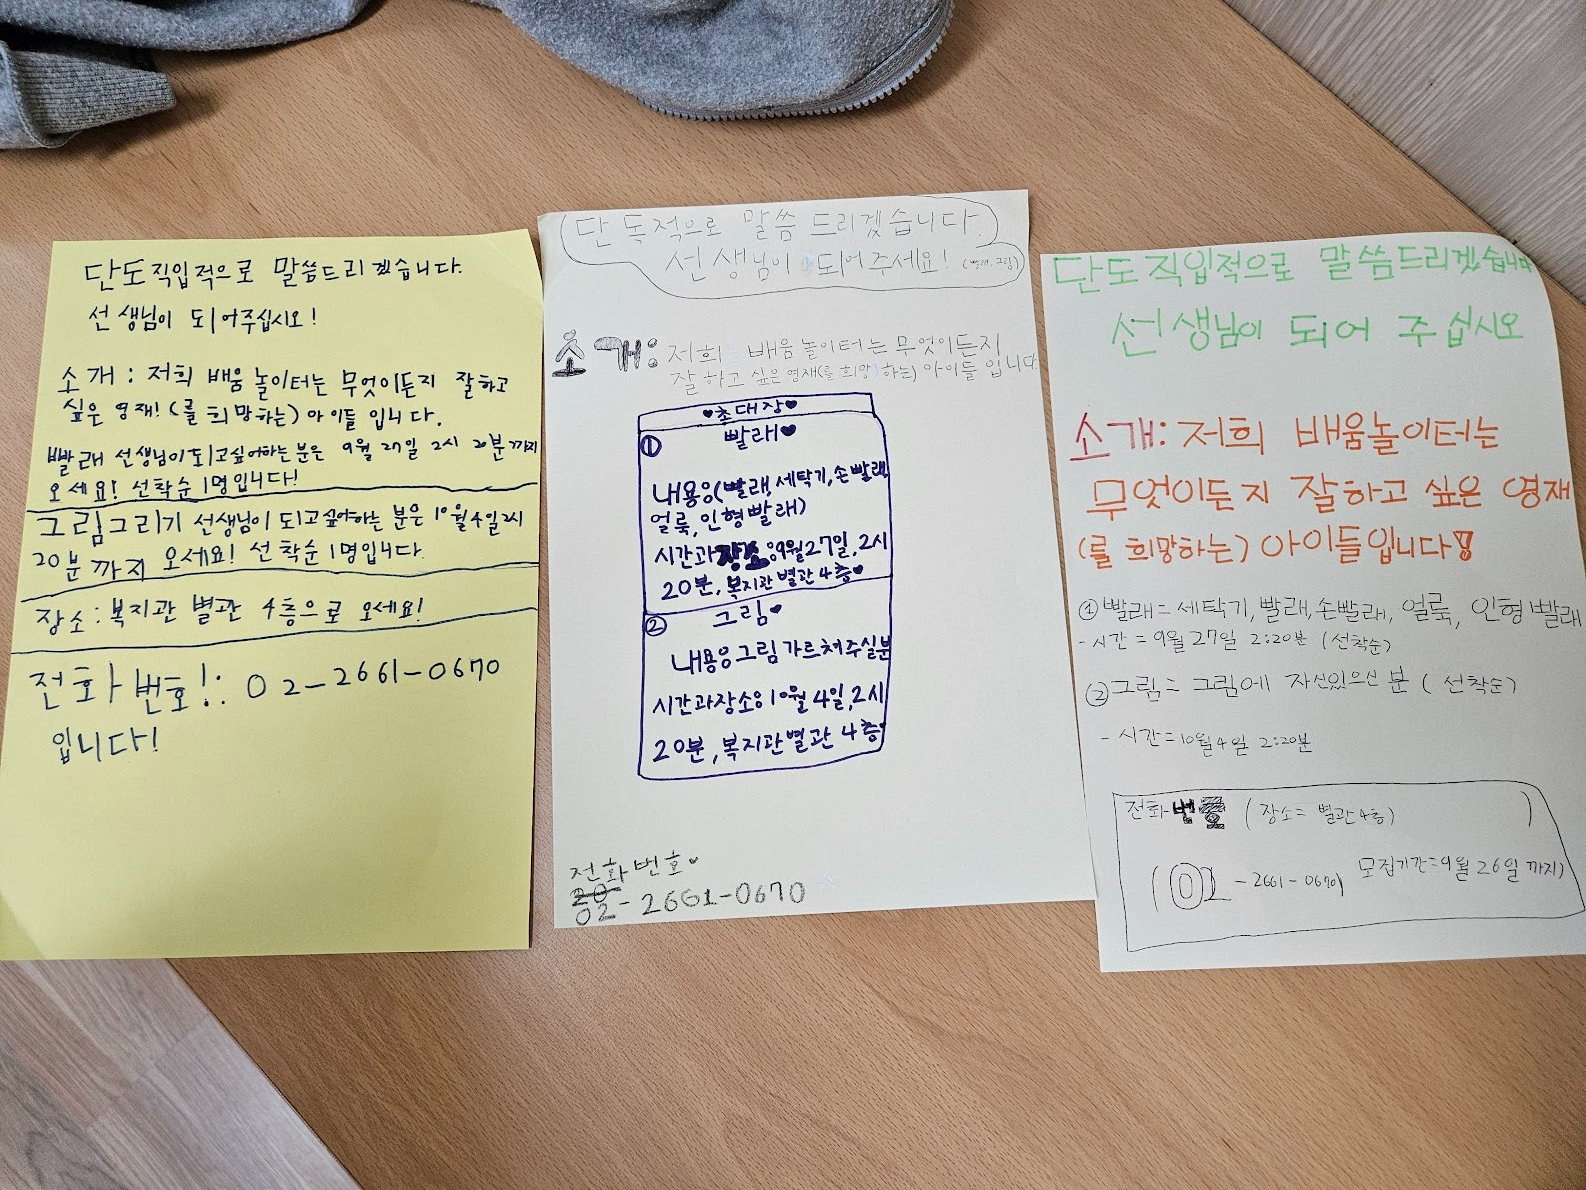 단도직입적으로 말씀드리겠습니다.
선생님이 되어주십시오!
소개: 저희 배움놀이터는 무엇이든지 잘하고
싶은 영재!(를 희망하는) 아이들 입니다.
빨래 선생님이되고싶어하는분은 9월 27일 2시 20분까지
오세요! 선착순 1명입니다!
그림그리기 선생님이 되고싶어하는 분은 10월4일2시
20분까지 오세요! 선착순 1명입니다.
장소:복지관 별관 4층으로 오세요!
전화번호!: 02-2661-0670
입니다!
단독적으로 말씀 드리겠습니다.
선생님이 되어주세요! (빨래,그림)
소개: 저희 배움놀이터는 무엇이든지
잘하고 싶은 영재(를 희망 하는) 아이들 입니다
♥초대장♥
① 빨래♥
내용:(빨래,세탁기,손빨래,
얼룩,인형빨래)
시간과장소:9월27일,2시
20분,복지관별관4층♥
② 그림♥
내용:그림 가르쳐주실분
시간과장소:10월4일,2시
20분,복지관별관 4층
전화번호♥
20
02-2661-0670
단도직입적으로 말씀드리겠습니다
선생님이 되어 주십시오
소개: 저희 배움놀이터는
무엇이든지 잘하고 싶은 영재
(를 희망하는) 아이들입니다!
①빨래= 세탁기,빨래,손빨래, 얼룩, 인형빨래
- 시간= 9월 27일 2:20분 (선착순)
②그림= 그림에 자신있으신 분 (선착순)
- 시간=10월4일 2:20분
전화번호 (장소= 별관4층)
(02-2661-0670) 모집기간=9월26일까지)